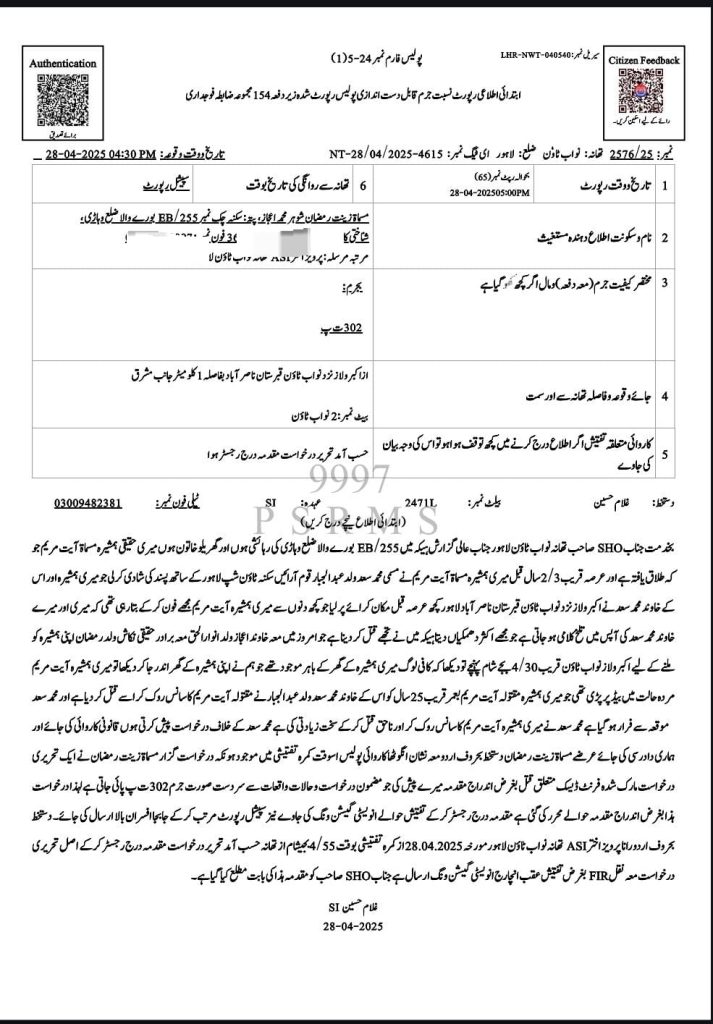 Authentication
برائے تصدیق
پولیس فارم نمبر 24-5(1)
سیریل نمبر: LHR-NWT-040540
Citizen Feedback
رائے کے لیے اسکین کریں۔
ابتدائی اطلاعی رپورٹ نسبت جرم قابل دست اندازی پولیس رپورٹ شدہ زیر دفعہ 154 مجموعہ ضابطہ فوجداری
نمبر: 2576/25 تھانہ: نواب ٹاؤن ضلع: لاہور ای ٹیگ نمبر: NT-28/04/2025-4615 تاریخ و وقت وقوعہ: 28-04-2025 04:30 PM
1 تاریخ و وقت رپورٹ بحوالہ رپٹ نمبر (65) 28-04-2025 05:00PM 6 تھانہ سے روانگی کا تاریخ و وقت سپیشل رپورٹ
2 نام و سکونت اطلاع دہندہ مستغیث مسماۃ زینت رمضان شوہر محمد اعجاز، پتہ: سکنہ چک نمبر 255/EB بورے والا ضلع وہاڑی،
شناختی کا 36 فون نمبر
مرتبہ مرسلہ: پرویز اختر ASI تھانہ نواب ٹاؤن لا
3 مختصر کیفیت جرم (معہ دفعہ) و مال اگر کچھ کھو گیا ہے بجرم:
302 ت پ
4 جائے وقوعہ و فاصلہ تھانہ سے اور سمت از اکبر ولاز نزد نواب ٹاؤن قبرستان ناصر آباد بفاصلہ 1 کلومیٹر جانب مشرق
بیٹ نمبر: 2 نواب ٹاؤن
5 کاروائی متعلقہ تفتیش اگر اطلاع درج کرنے میں کچھ توقف ہوا ہو تو اس کی وجہ بیان کی جاوے حسب آمد تحریر درخواست مقدمہ درج رجسٹر ہوا
9997
دستخط: غلام حسین بیلٹ نمبر: 2471L عہدہ: SI ٹیلی فون نمبر: 03009482381
PSRMS
(ابتدائی اطلاع نیچے درج کریں)
بخدمت جناب SHO صاحب تھانہ نواب ٹاؤن لاہور جناب عالی گزارش ہیکہ میں 255/EB بورے والا ضلع وہاڑی کی رہائشی ہوں اور گھریلو خاتون ہوں میری حقیقی ہمشیرہ مسماۃ آیت مریم جو
کہ طلاق یافتہ ہے اور عرصہ قریب 2/3 سال قبل میری ہمشیرہ مسماۃ آیت مریم نے مسمی محمد سعد ولد عبدالجبار قوم آرائیں سکنہ ٹاؤن شپ لاہور کے ساتھ پسند کی شادی کر لی جو میری ہمشیرہ اور اس
کے خاوند محمد سعد نے اکبر ولاز نزد نواب ٹاؤن قبرستان ناصر آباد لاہور کچھ عرصہ قبل مکان کرائے پر لیا جو کچھ دنوں سے میری ہمشیرہ آیت مریم مجھے فون کر کے بتا رہی تھی کہ میری اور میرے
خاوند محمد سعد کی آپس میں تلخ کلامی ہو جاتی ہے جو مجھے اکثر دھمکیاں دیتا ہیکہ میں نے تجھے قتل کر دینا ہے جو امروز میں معہ خاوند اعجاز ولد انوار الحق معہ برادر حقیقی نکاش ولد رمضان اپنی ہمشیرہ کو
ملنے کے لیے اکبر ولاز نواب ٹاؤن قریب 4/30 بجے شام پہنچے تو دیکھا کہ کافی لوگ میری ہمشیرہ کے گھر کے باہر موجود تھے جو ہم نے اپنی ہمشیرہ کے گھر اندر جا کر دیکھا تو میری ہمشیرہ آیت مریم
مردہ حالت میں بیڈ پر پڑی تھی جو میری ہمشیرہ مقتولہ آیت مریم بعمر قریب 25 سال کو اس کے خاوند محمد سعد ولد عبدالجبار نے مقتولہ آیت مریم کا سانس روک کر اسے قتل کر دیا ہے اور محمد سعد
موقعہ سے فرار ہو گیا ہے محمد سعد نے میری ہمشیرہ آیت مریم کا سانس روک کر اور ناحق قتل کر کے سخت زیادتی کی ہے محمد سعد کے خلاف درخواست پیش کرتی ہوں قانونی کاروائی کی جائے اور
ہماری دادرسی کی جائے عرضے مسماۃ زینت رمضان دستخط بحروف اردو معہ نشان انگوٹھا کاروائی پولیس اسوقت کمرہ تفتیشی میں موجود ہوں کہ درخواست گزار مسماۃ زینت رمضان نے ایک تحریری
درخواست مارک شدہ فرنٹ ڈیسک متعلق قتل بغرض اندراج مقدمہ میرے پیش کی جو مضمون درخواست و حالات واقعات سے سردست صورت جرم 302 ت پ پائی جاتی ہے لہذا درخواست
ہذا بغرض اندراج مقدمہ حوالے محرر کی گئی ہے مقدمہ درج رجسٹر کر کے تفتیش حوالے انویسٹی گیشن ونگ کی جاوے نیز سپیشل رپورٹ مرتب کر کے جابجا افسران بالا ارسال کی جائے۔ دستخط
بحروف اردو رانا پرویز اختر ASI تھانہ نواب ٹاؤن لاہور مورخہ 28.04.2025 از کمرہ تفتیشی بوقت 4/55 بجے شام از تھانہ حسب آمد تحریر درخواست مقدمہ درج رجسٹر کر کے اصل تحریری
درخواست معہ نقل FIR بغرض تفتیش عقب انچارج انویسٹی گیشن ونگ ارسال ہے جناب SHO صاحب کو مقدمہ ہذا کی بابت مطلع کیا گیا ہے۔
غلام حسین SI
28-04-2025